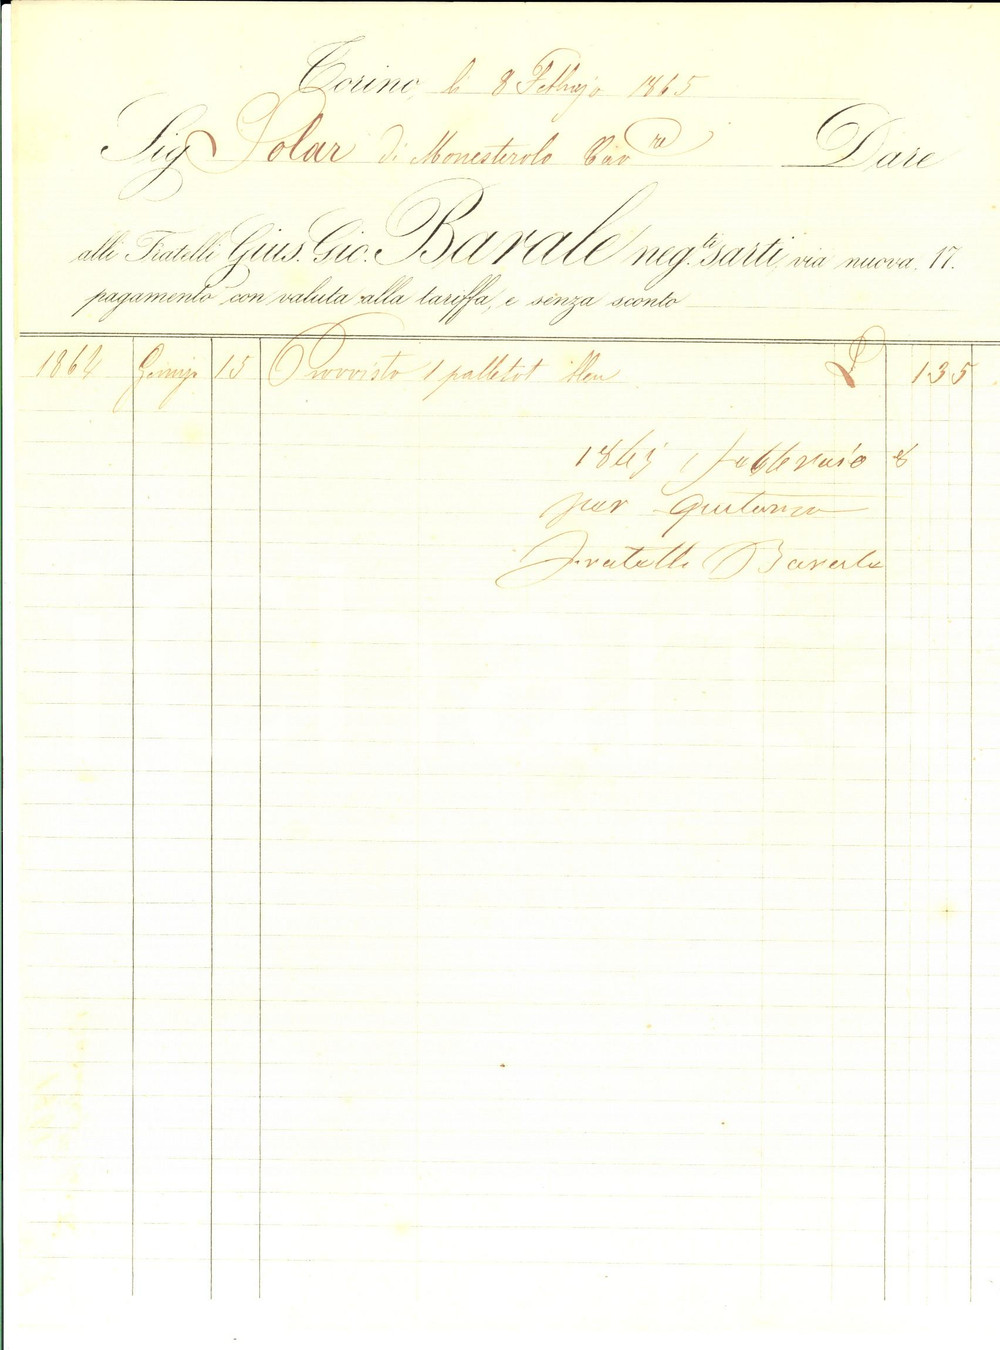 Torino, li 8 Febbrajo 1865
Sig Solar di Monesterolo Cav.re Dare
alli Fratelli Gius. Gio. Barale neg.ti sarti, via nuova, 17.
pagamento con valuta alla tariffa, e senza sconto
1864 15 Provvisto 1 palletot bleu L 135
1865 febbraio 8
per quitanza
Fratelli Barale